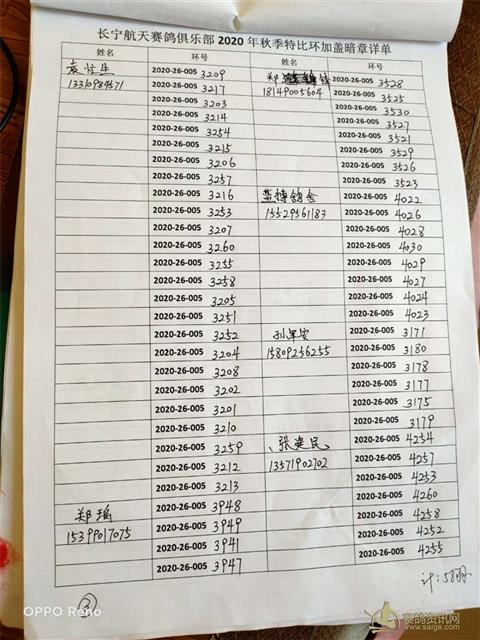 长宁航天赛鸽俱乐部 2020 年秋季特比环加盖暗章详单
姓名 环号 姓名 环号
2020-26-005 3209 郑 2020-26-005 3528
13310984571 2020-26-005 3217 18149005604 2020-26-005 3525
2020-26-005 3203 2020-26-005 3530
2020-26-005 3214 2020-26-005 3527
2020-26-005 3254 2020-26-005 3521
2020-26-005 3215 2020-26-005 3529
2020-26-005 3206 2020-26-005 3526
2020-26-005 3257 2020-26-005 3523
2020-26-005 3216 2020-26-005 4022
2020-26-005 3253 15529561183 2020-26-005 4026
2020-26-005 3207 2020-26-005 4028
2020-26-005 3260 2020-26-005 4030
2020-26-005 3255 2020-26-005 4029
2020-26-005 3258 2020-26-005 4027
2020-26-005 3205 2020-26-005 4024
2020-26-005 3251 2020-26-005 4023
2020-26-005 3252 孙军安 2020-26-005 3171
2020-26-005 3204 15809236255 2020-26-005 3180
2020-26-005 3208 2020-26-005 3178
2020-26-005 3202 2020-26-005 3177
2020-26-005 3201 2020-26-005 3175
2020-26-005 3210 2020-26-005 3179
2020-26-005 3259 张建民 2020-26-005 4254
2020-26-005 3212 13571902702 2020-26-005 4257
2020-26-005 3213 2020-26-005 4253
郑瑶 2020-26-005 3948 2020-26-005 4260
15399017075 2020-26-005 3949 2020-26-005 4258
2020-26-005 3941 2020-26-005 4252
2020-26-005 3947 2020-26-005 4255
计:58羽
②
OPPO Reno
赛鸽资讯网
www.saige.com